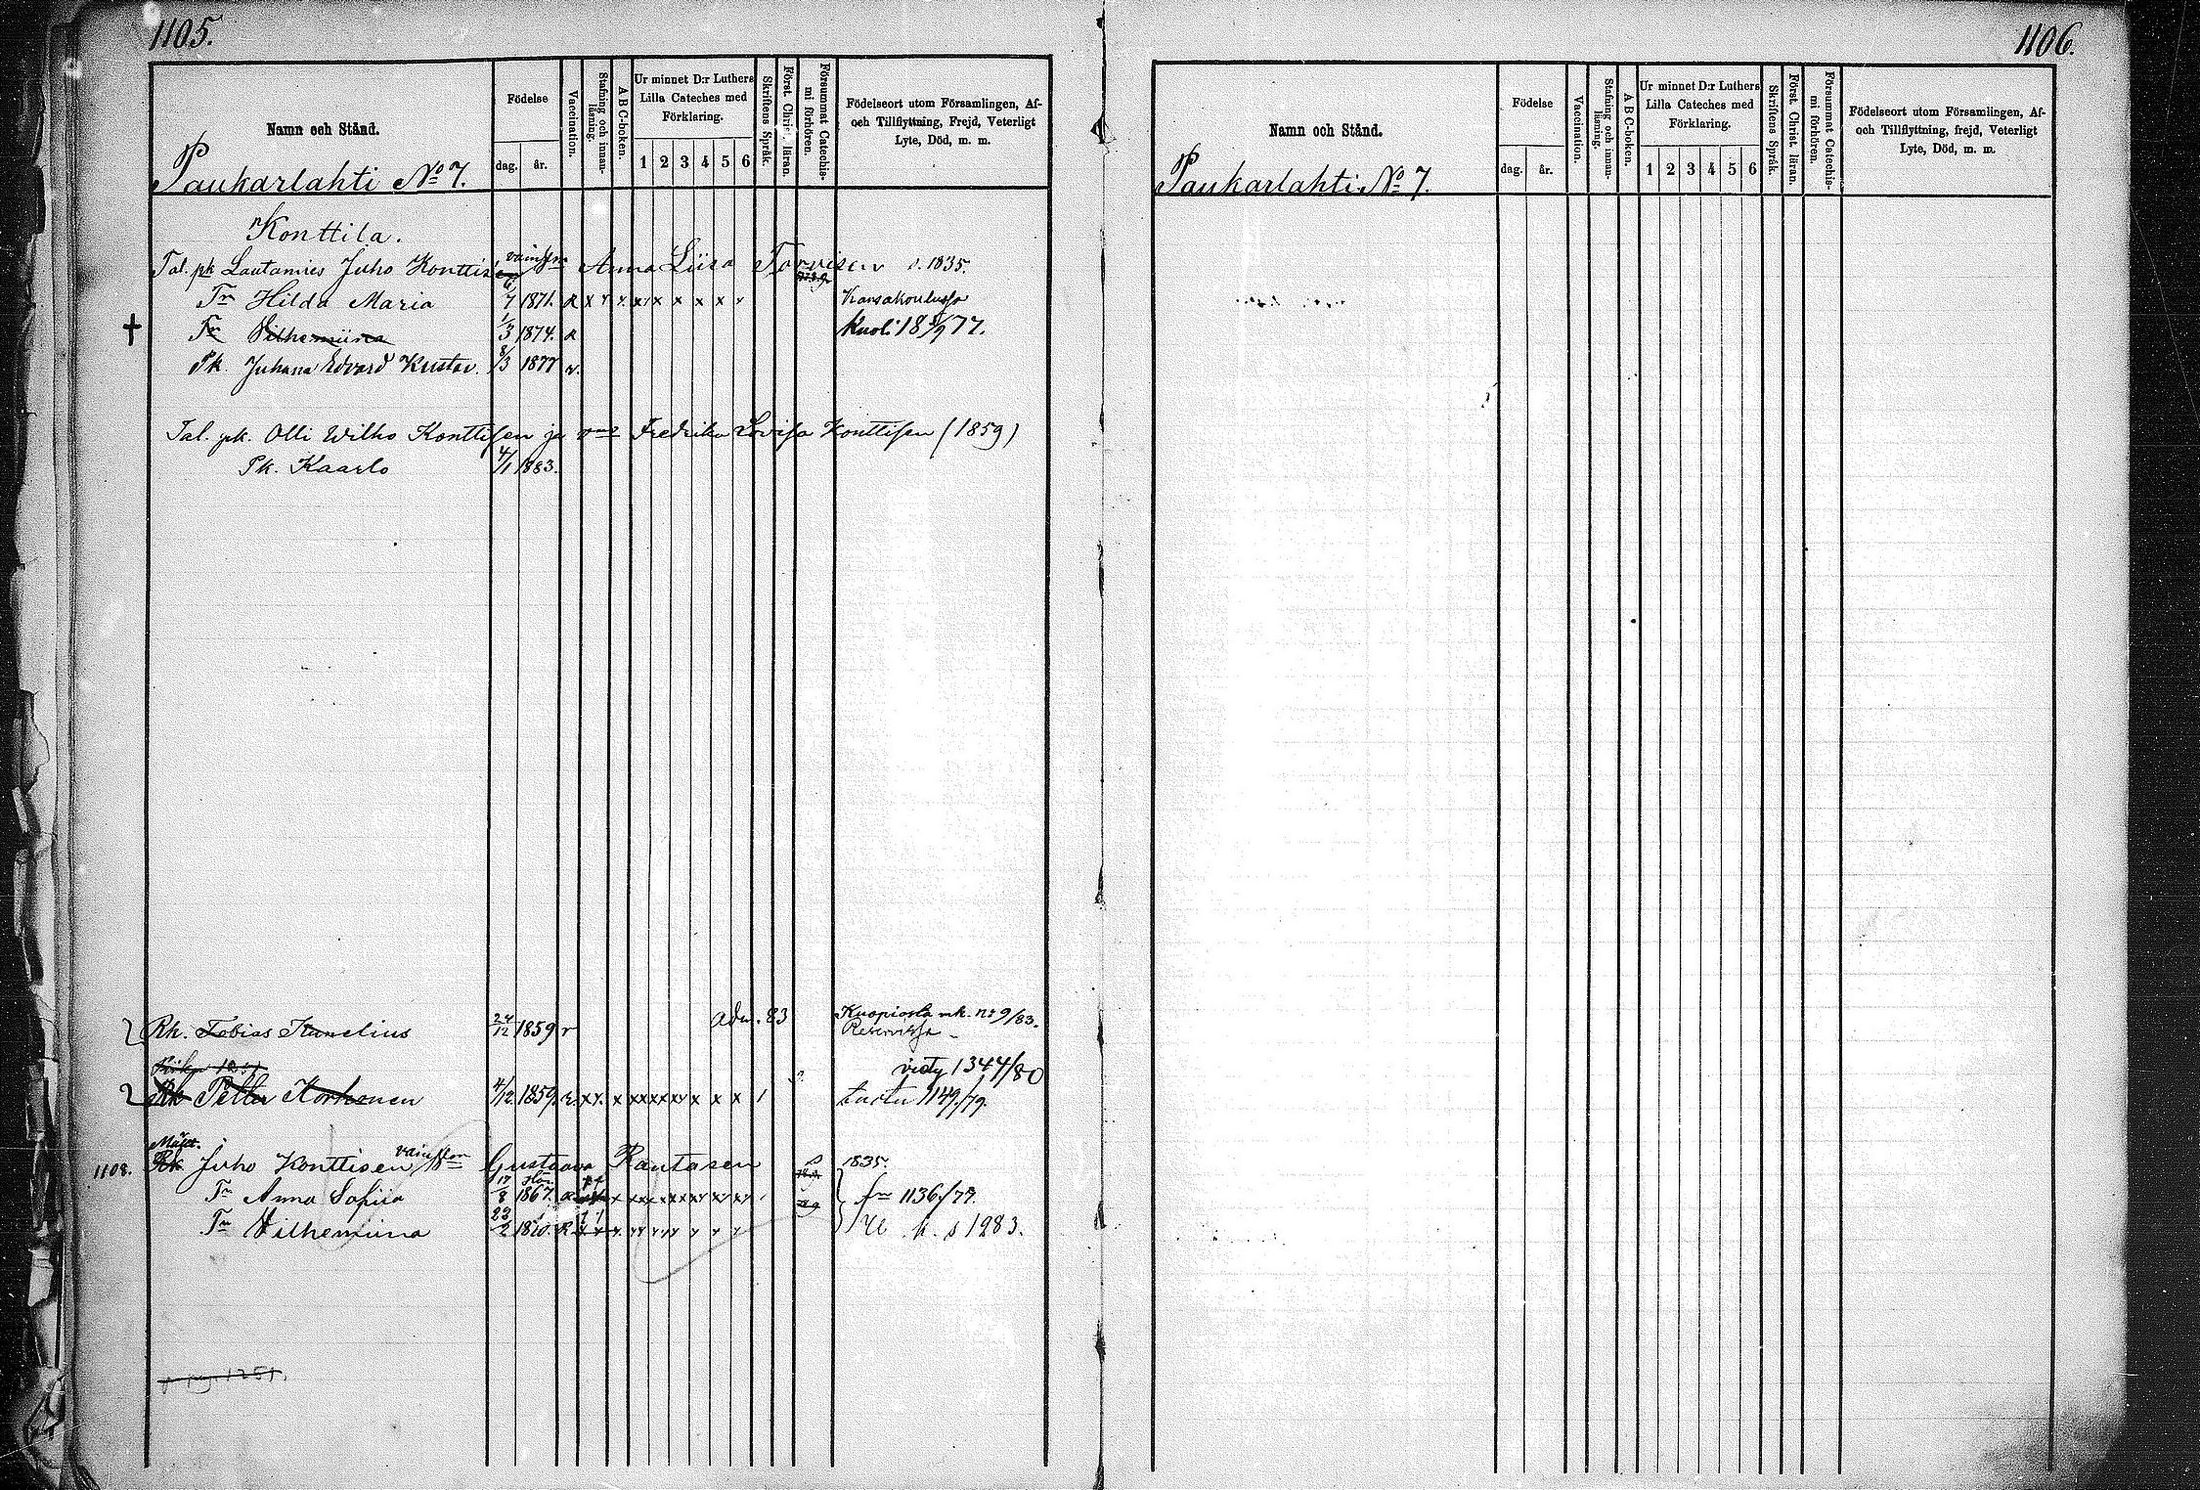 1105.
Namn och Stånd.
Födelse
dag.
år.
Vaccination.
Stafning och innan-
läsning.
A B C-boken.
Ur minnet D:r Luthers
Lilla Cateches med
Förklaring.
1 2 3 4 5 6
Skriftens Språk.
Först. Christ. läran.
Försummat Catechis-
mi förhören.
Födelseort utom Församlingen, Af-
och Tillflyttning, Frejd, Veterligt
Lyte, Död, m. m.
Paukarlahti No 7.
Konttila.
Tal. pk Lautamies Juho Konttisen Anna Liisa s. 1835.
Tr Hilda Maria 6/7 1871. R x x x x x x x Kansakoulussa
† Tr Vilhemiina 1/3 1874. R Kuoli 18 77.
Pk. Juhana Edvard Kustav. 8/3 1877 r.
Tal. pk. Olli Wilho Konttisen ja Fredrika Lovisa Konttisen (1859)
Pk. Kaarlo 4/1 1883.
Rk. Tobias Kumelius 24/12 1859 r adm. 83 Kuopiosta mk. no 9/83.
Reservissä
1251
1344/80
Rk Petter Korhonen 4/12 1859. r. tuotu 1149/79.
1108. Rk Juho Konttisen Gustaava Rautasen 1835.
Tr Anna Sofiia 17/8 1867. 1136/77.
Tr Vilhemiina 23/2 1870. R k. s 1283.
1251.
1106.
Namn och Stånd.
Födelse
dag.
år.
Vaccination.
Stafning och innan-
läsning.
A B C-boken.
Ur minnet D:r Luthers
Lilla Cateches med
Förklaring.
1 2 3 4 5 6
Skriftens Språk.
Först. Christ. läran.
Försummat Catechis-
mi förhören.
Födelseort utom Församlingen, Af-
och Tillflyttning, frejd, Veterligt
Lyte, Död, m. m.
Paukarlahti No 7.